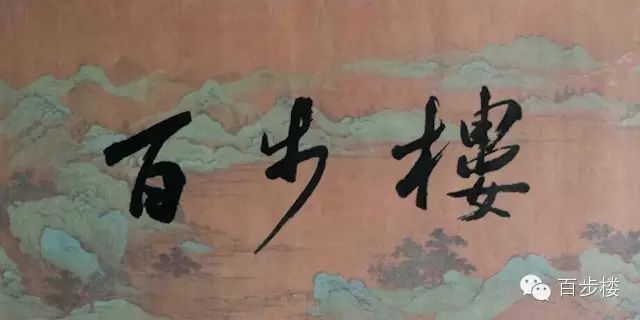 百步楼
百步楼